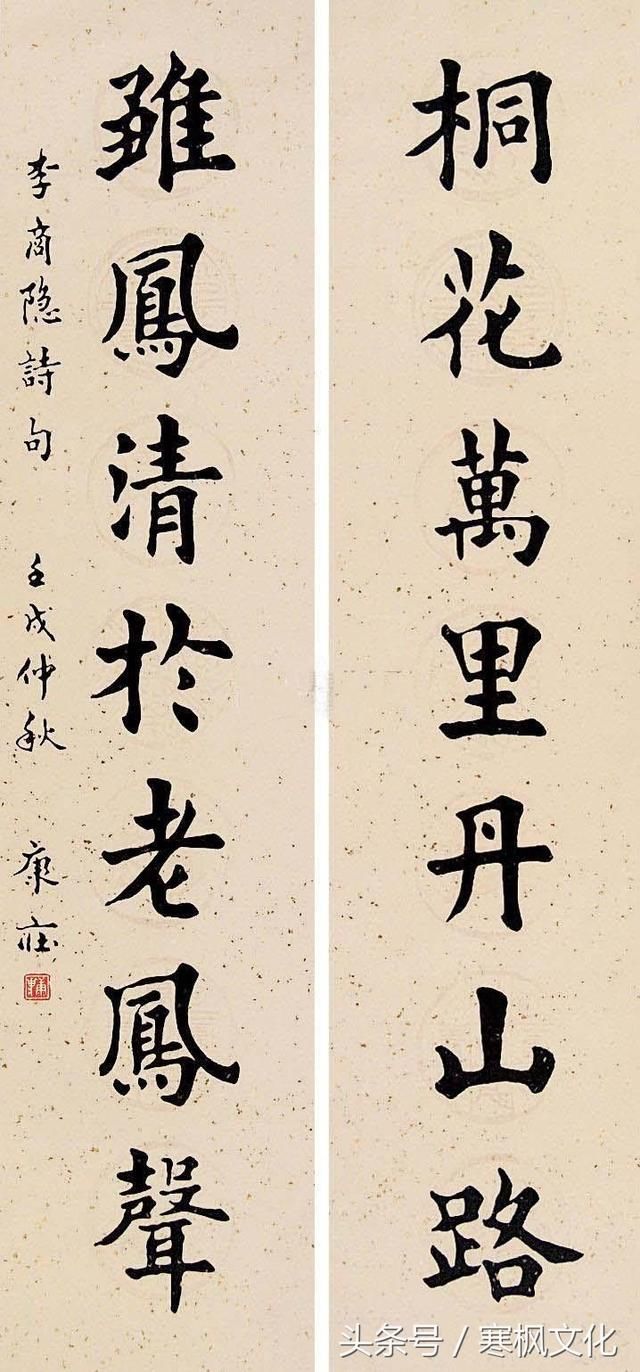 桐花萬里丹山路
雛鳳清於老鳳聲
李商隐詩句 壬戌仲秋 康庄
头条号 / 寒枫文化